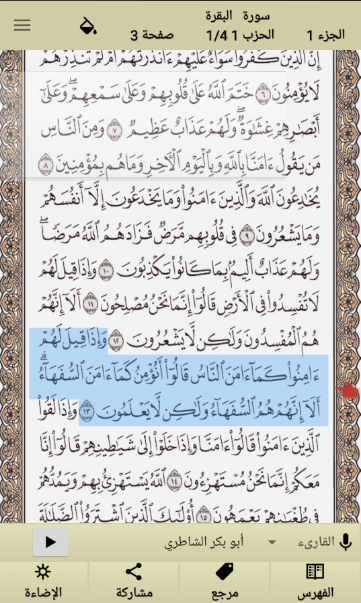 سورة البقرة
الجزء 1 الحزب 1/4 1 صفحة 3
إِنَّ الَّذِينَ كَفَرُوا سَوَاءٌ عَلَيْهِمْ ءَأَنذَرْتَهُمْ أَمْ لَمْ تُنذِرْهُمْ
لَا يُؤْمِنُونَ ٦ خَتَمَ اللَّهُ عَلَىٰ قُلُوبِهِمْ وَعَلَىٰ سَمْعِهِمْ ۖ وَعَلَىٰ
أَبْصَـٰرِهِمْ غِشَـٰوَةٌ ۖ وَلَهُمْ عَذَابٌ عَظِيمٌ ٧ وَمِنَ النَّاسِ
مَن يَقُولُ ءَامَنَّا بِاللَّهِ وَبِالْيَوْمِ الْـَٔاخِرِ وَمَا هُم بِمُؤْمِنِينَ ٨
يُخَـٰدِعُونَ اللَّهَ وَالَّذِينَ ءَامَنُوا وَمَا يَخْدَعُونَ إِلَّا أَنفُسَهُمْ
وَمَا يَشْعُرُونَ ٩ فِى قُلُوبِهِم مَّرَضٌ فَزَادَهُمُ اللَّهُ مَرَضًا ۖ
وَلَهُمْ عَذَابٌ أَلِيمٌ بِمَا كَانُوا يَكْذِبُونَ ١٠ وَإِذَا قِيلَ لَهُمْ
لَا تُفْسِدُوا فِى الْأَرْضِ قَالُوا إِنَّمَا نَحْنُ مُصْلِحُونَ ١١ أَلَا إِنَّهُمْ
هُمُ الْمُفْسِدُونَ وَلَـٰكِن لَّا يَشْعُرُونَ ١٢ وَإِذَا قِيلَ لَهُمْ
ءَامِنُوا كَمَا ءَامَنَ النَّاسُ قَالُوا أَنُؤْمِنُ كَمَا ءَامَنَ السُّفَهَاءُ ۗ
أَلَا إِنَّهُمْ هُمُ السُّفَهَاءُ وَلَـٰكِن لَّا يَعْلَمُونَ ١٣ وَإِذَا لَقُوا
الَّذِينَ ءَامَنُوا قَالُوا ءَامَنَّا وَإِذَا خَلَوْا إِلَىٰ شَيَـٰطِينِهِمْ قَالُوا إِنَّا
مَعَكُمْ إِنَّمَا نَحْنُ مُسْتَهْزِءُونَ ١٤ اللَّهُ يَسْتَهْزِئُ بِهِمْ وَيَمُدُّهُمْ
فِى طُغْيَـٰنِهِمْ يَعْمَهُونَ ١٥ أُولَـٰئِكَ الَّذِينَ اشْتَرَوُا الضَّلَـٰلَةَ
القارىء أبو بكر الشاطري
الفهرس مرجع مشاركة الإضاءة